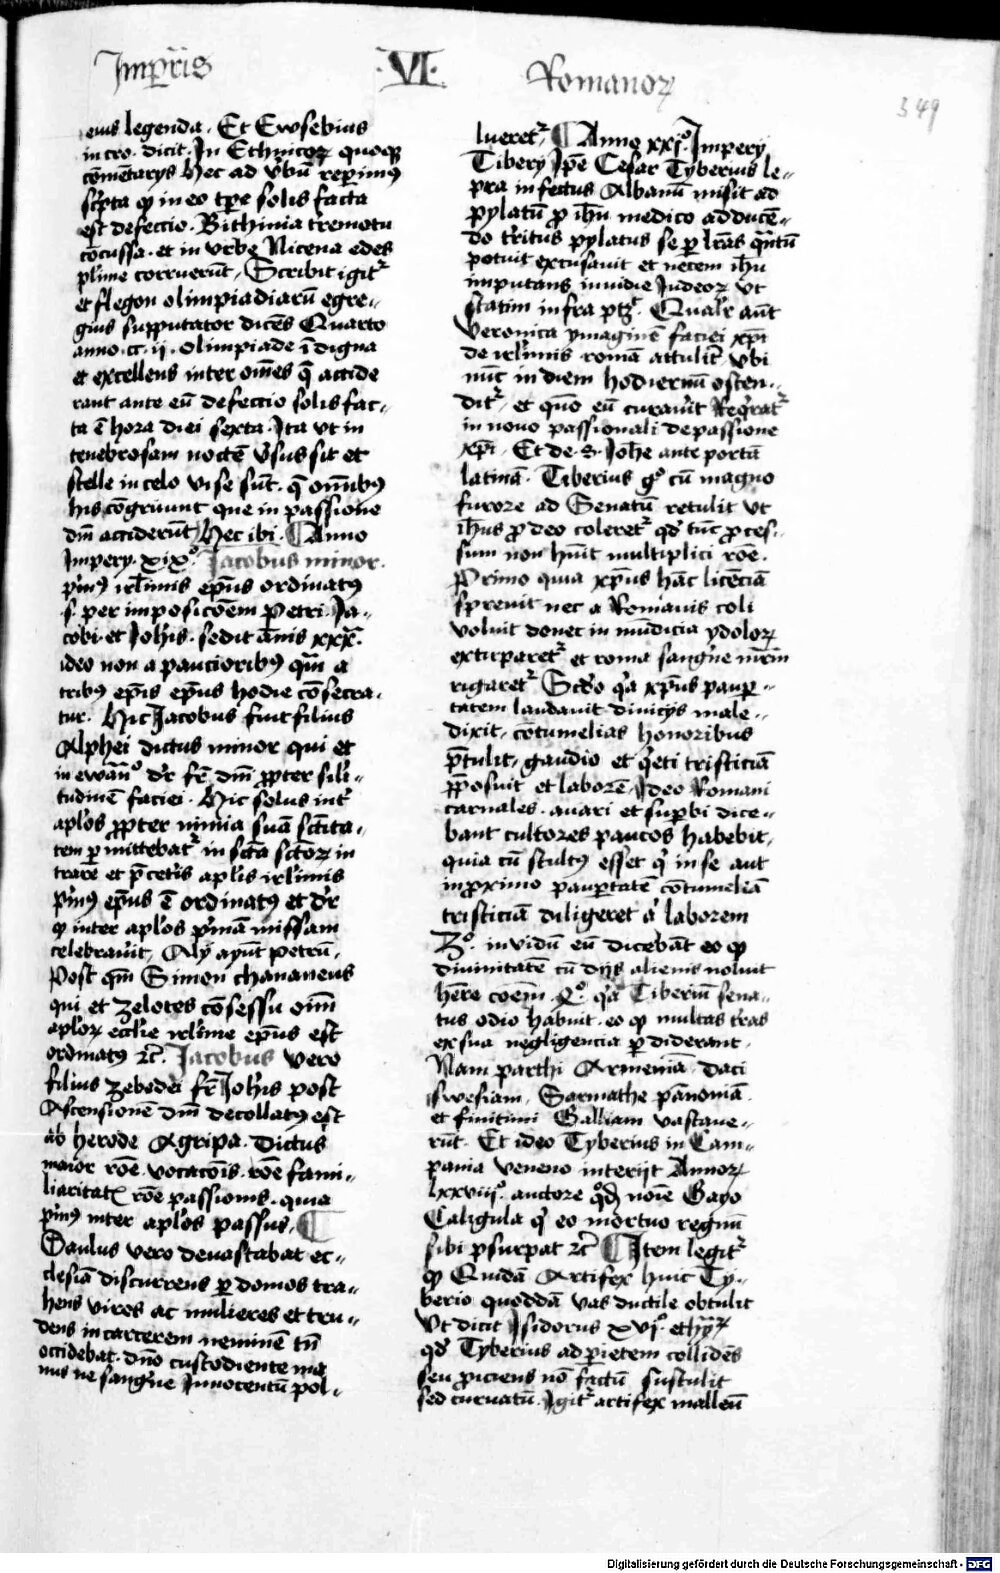 Imperis
·VI·
Romanoꝝ
349
eius legenda. Et Ewsebius
in cro. dicit. In Ethnicoꝝ quoqꝫ
cōmētarys hec ad v̓bū reperimꝰ
sc̓pta qp in eo tp̄e solis facta
est defeccio. Bithinia tremotu
cōcussa. et in vrbe Nicena edes
plīme corruerūt, Scribit igit᷑
et flegon olimpiadiarū egre-
gius supputator dicēs Quarto
anno. cc. ij. olimpiade ī digna
et excellens inter om̄es q̄ accide
rant ante eū defeccio solis fac-
ta ē hora diei sexta. Ita vt in
tenebrosam noctē v̓sus sit et
stelle in celo vise sūt. q̄ om̄ibꝰ
his cōgruunt que in passione
dn̄i acciderūt hec ibi. ¶ Anno
Impery. xixº. Jacobus minor.
p̓mꝰ irl̄imis ep̄us ordinatꝰ
.s. per imposicōem Petri. Ja-
cobi. et Joh̓is. sedit ānis xxx.
ideo non a paucioribꝰ qm̄ a
tribꝰ ep̄is ep̄us hodie cōsecra-
tur. Hic Jacobus fuit filius
Alphei dictus minor qui et
in ewānº dr̄ fr̄ dn̄i ꝓpter sil̓i-
tudinē faciei. Hic solus int̓
ap̄los ꝓpter nimia suā sc̄ita-
tem ꝑmittebat᷑ in sc̄ta sc̄toꝝ in
trare et p̄ cet̓is ap̄lis irl̄imis
p̓mꝰ ep̄us ē ordinatꝰ et dr̄
qp inter ap̄los p̓mā missam
celebrauit, Aly ayūt petrū,
Post qm̄ Simon chananeus
qui et zelotes cōsessu oīm
aploꝝ eccl̄ie irl̄ime ep̄us est
ordinatꝰ ⁊c̄. Jacobus vero
filius zebedei fr̄ Joh̓is post
Ascensionē dn̄i decollatꝰ est
ab herode Agripa. Dictus
maior rōe. vocacōis. rōe fami-
liaritatꝭ rōe passionis. quia
p̓mꝰ inter ap̄los passus, ¶
Saulus vero deuastabat ec-
clesiā discurrens ꝑ domos tra-
hens viros ac mulieres et tru-
dens in carcerem neminē tn̄
occidebat. dn̄o custodiente ma
nus ne sang̓ne Innocentū pol-
lueret᷑ ¶ Anno xxjº. Impery
Tibery Ip̄e Cesar Tyberius le-
pra infectus Albanū misit ad
pylatū ꝓ ih̄u medico adducē-
do tr̓itus pylatus se ꝑ lr̄as q̄ntū
potuit excusauit et necem ih̄u
imputans inuidie Judeoꝝ vt
statim infra ptꝫ. Qual̓r aūt
veronica ymaginē faciei xp̄i
de irl̄imis romā attulit, vbi
nūc in diem hodiernū osten-
dit᷑, et quō eū curau̓it Req̓rat᷑
in nouo passionali de passione
xp̄i. Et de .S. Joh̄e ante portā
latinā. Tiberius gº cū magno
furore ad Senatū retulit vt
ih̄us ꝓ deo coleret᷑ qd̓ tūc ꝓces-
sum non hūit multiplici rōe.
Primo quia xp̄us hāc licēciā
spreuit nec a Romanis coli
voluit donec in mūdicia ydoloꝝ
extirparet᷑ et roma sang̓ne mr̄m
rigaret᷑ Scd̓o q̓a xp̄us pauꝑ-
tatem laudauit diuicijs male-
dixit, cōtumelias honoribus
p̄tulit, gaudio et q̓eti tristiciā
p̄posuit et laborē, Ideo Romani
carnales. auari et suꝑbi dice-
bant cultores paucos habebit,
quia cū stultꝰ esset q̓ in se aut
in proximo pauꝑtatē cōtumeliā
tristiciā diligeret a̓ laborem
3º. inuidū eū dicebāt eo qp
diuinitatē cū dijs alienis noluit
hēre coēm. 4º. q̓a Tiberiū sena-
tus odio habuit. eo qp multas tr̄as
ex sua negligencia ꝑdiderant.
Nam parthi Armeniā. daci
swesiam, Sarmathe pānoniā.
et finitimi Galliam vastaue-
rūt. Et ideo Tyberius in Cam-
pania veneno interijt Annoꝝ
lxxviijº. auctore qd̓ noīe Gayo
Caligula q̓ eo mortuo regnū
sibi vsurpat ⁊c̄ ¶ Item legit᷑
qp Quidā Artifex huic Ty-
berio quoddā vas ductile obtulit
vt dicit Isidorus xvjº. ethyꝝ
qd̓ Tyberius ad parietem collidēs
seu ꝓiciens nō fractū sustulit
sed curuatū. Igit᷑ artifex malleū
Digitalisierung gefördert durch die Deutsche Forschungsgemeinschaft - DFG